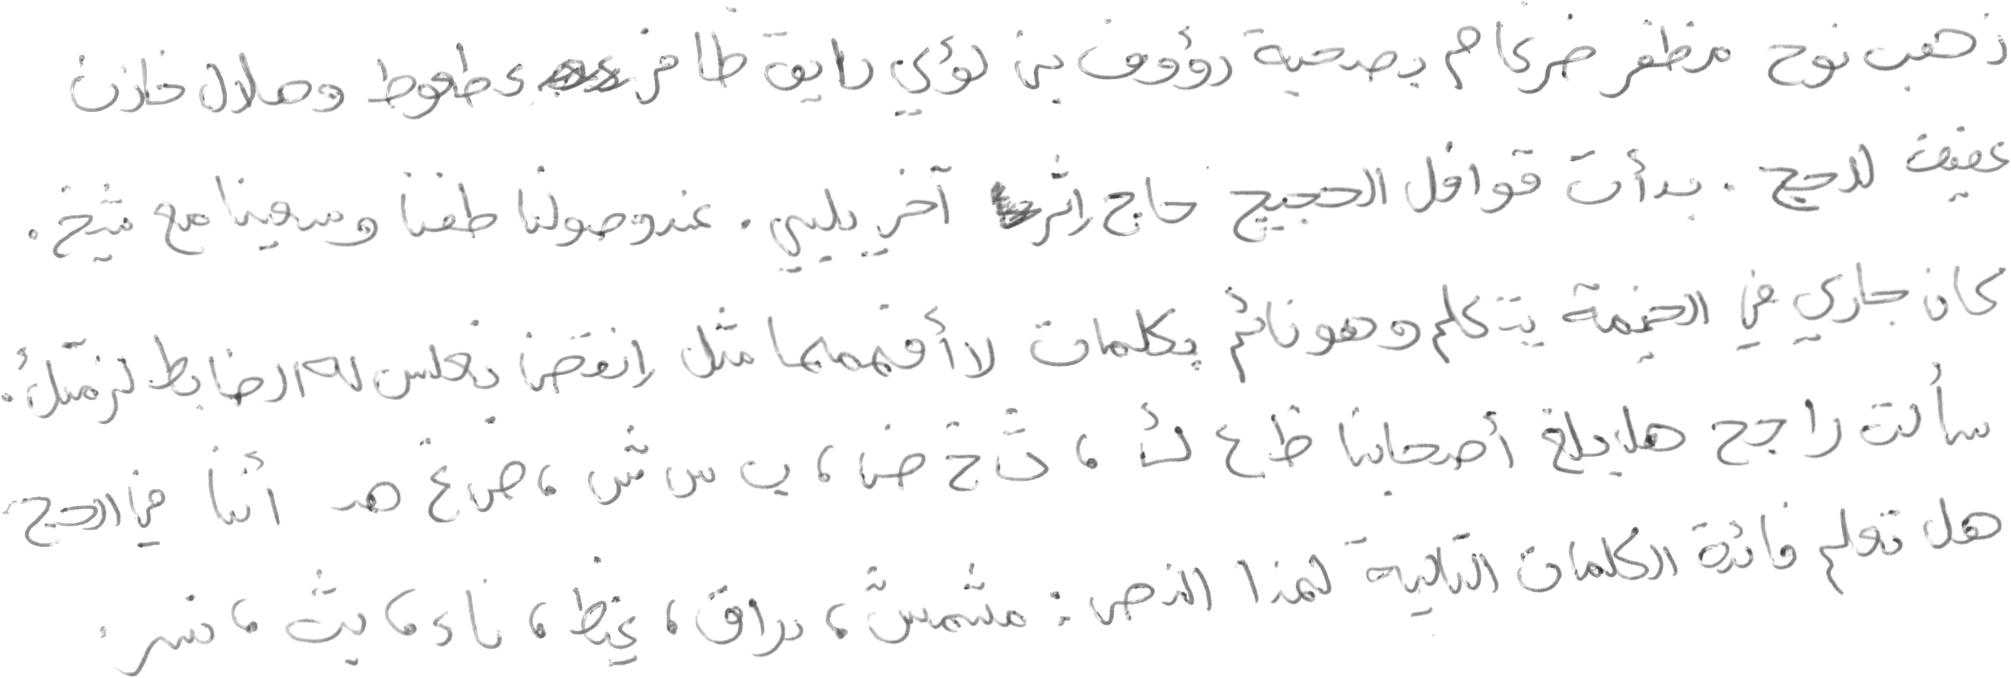 ذهب نوح مظفر ضرغام بصحبة رؤوف بن لؤي رايق ظافر عطعوط وهلال خازن
عفيف للحج . بدأت قوافل الحجيج حاج إثر آخر يلبي . عند وصولنا طفنا وسعينا مع شيخ .
كان جاري في الخيمة يتكلم وهو نائم بكلمات لا أفهمها مثل إنقض بغلس له الضابط لزمتك .
سألت راجح هل بلغ أصحابنا ظ ع ك ، ث خ ض ، ب س ش ، ص غ هـ أننا في الحج
هل تعلم فائدة الكلمات التالية لهذا النص : مشمش ، براق ، غيظ ، ناء ، يث ، نسر .